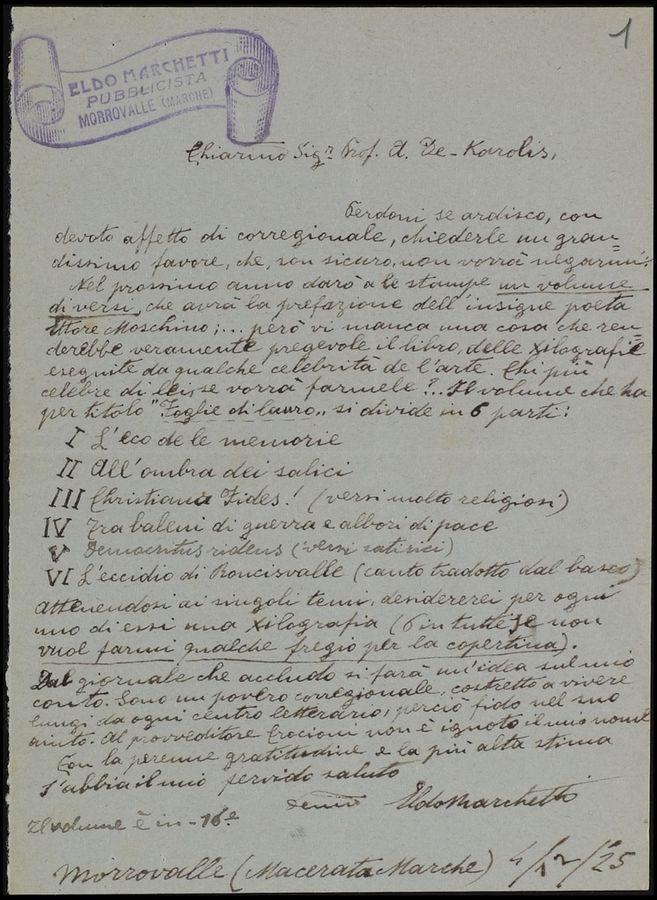 1
ELDO MARCHETTI
PUBBLICISTA
MORROVALLE (MARCHE)
Chiarmo Sigr Prof. A. De-Karolis,
Perdoni se ardisco, con
devoto affetto di corregionale, chiederle un gran=
dissimo favore, che, son sicuro, non vorrà negarmi.
Nel prossimo anno darò a le stampe un volume
di versi, che avrà la prefazione dell'insigne poeta
Ettore Moschino;... però vi manca una cosa che ren=
derebbe veramente pregevole il libro, delle xilografie
eseguite da qualche celebrità de l'arte. Chi più
celebre di lei, se vorrà farmele?.. Il volume che ha
per titolo "Foglie di lauro,, si divide in 6 parti:
I L'eco de le memorie
II All'ombra dei salici
III Christiana Fides! (versi molto religiosi)
IV Tra baleni di guerra e albori di pace
V Democritus ridens (versi satirici)
VI L'eccidio di Roncisvalle (canto tradotto dal basco)
Attenendosi ai singoli temi, desidererei per ogni
uno di essi una xilografia (6 in tutte) se non
vuol farmi qualche fregio per la copertina).
Dal giornale che accludo si farà un'idea sul mio
conto. Sono un povero corregionale, costretto a vivere
lungi da ogni centro letterario, perciò fido nel suo
aiuto. Al provveditore Crocioni non è ignoto il mio nome
Con la perenne gratitudine e la più alta stima
s'abbia il mio fervido saluto
Eldo Marchetti
Il volume è in-16e
Morrovalle (Macerata Marche) 4/12/25